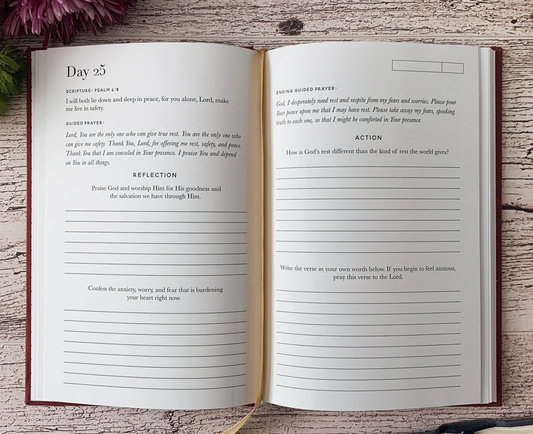 Day 25
SCRIPTURE: PSALM 4:8
I will both lie down and sleep in peace, for you alone, Lord, make
me live in safety.
GUIDED PRAYER:
Lord, You are the only one who can give true rest. You are the only one who
can give me safety. Thank You, Lord, for offering me rest, safety, and peace.
Thank You that I am concealed in Your presence. I praise You and depend
on You in all things.
REFLECTION
Praise God and worship Him for His goodness and
the salvation we have through Him.
Confess the anxiety, worry, and fear that is burdening
your heart right now.
ENDING GUIDED PRAYER:
God, I desperately need rest and respite from my fears and worries. Please pour
Your peace upon me that I may have rest. Please take away my fears, speaking
truth to each one, so that I might be comforted in Your presence.
ACTION
How is God's rest different than the kind of rest the world gives?
Write the verse in your own words below. If you begin to feel anxious,
pray this verse to the Lord.